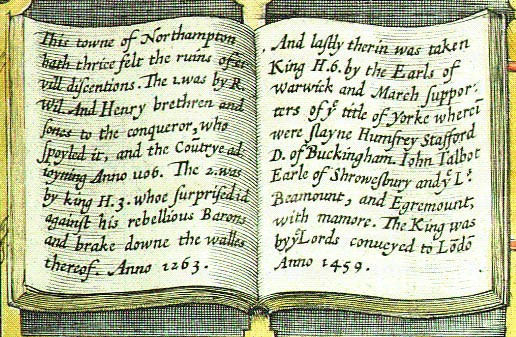 This towne of Northampton
hath thrice felt the ruins of ci
vill discentions. The 1. was by R.
Wil. And Henry brethren and
sones to the conqueror, who
spoyled it, and the Coutrye ad
ioyning Anno 1106. The 2. was
by king H. 3. whoe surprised it
against his rebellious Barons
and brake downe the walles
thereof. Anno 1263.
And lastly therin was taken
King H. 6. by the Earls of
Warwick and March suppor-
ters of yͤ title of Yorke wherei̅
were slayne Humfrey Stafford
D. of Buckingham. Iohn Talbot
Earle of Shrowesbury and yͤ Lͭ
Beamount, and Egremount,
with mamore. The King was
by yͤ Lords conueyed to Lo̅do̅
Anno 1459.